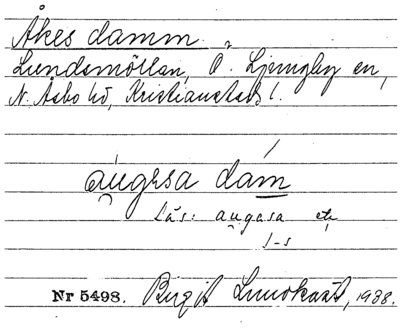 Åkes damm.
Lundsmöllan, Ö. Ljungby sn,
N. Åsbo hd, Kristianstads l.
áugasa dám
Läs: augasa etc
1-s
Nr 5498. Birgit 1938.